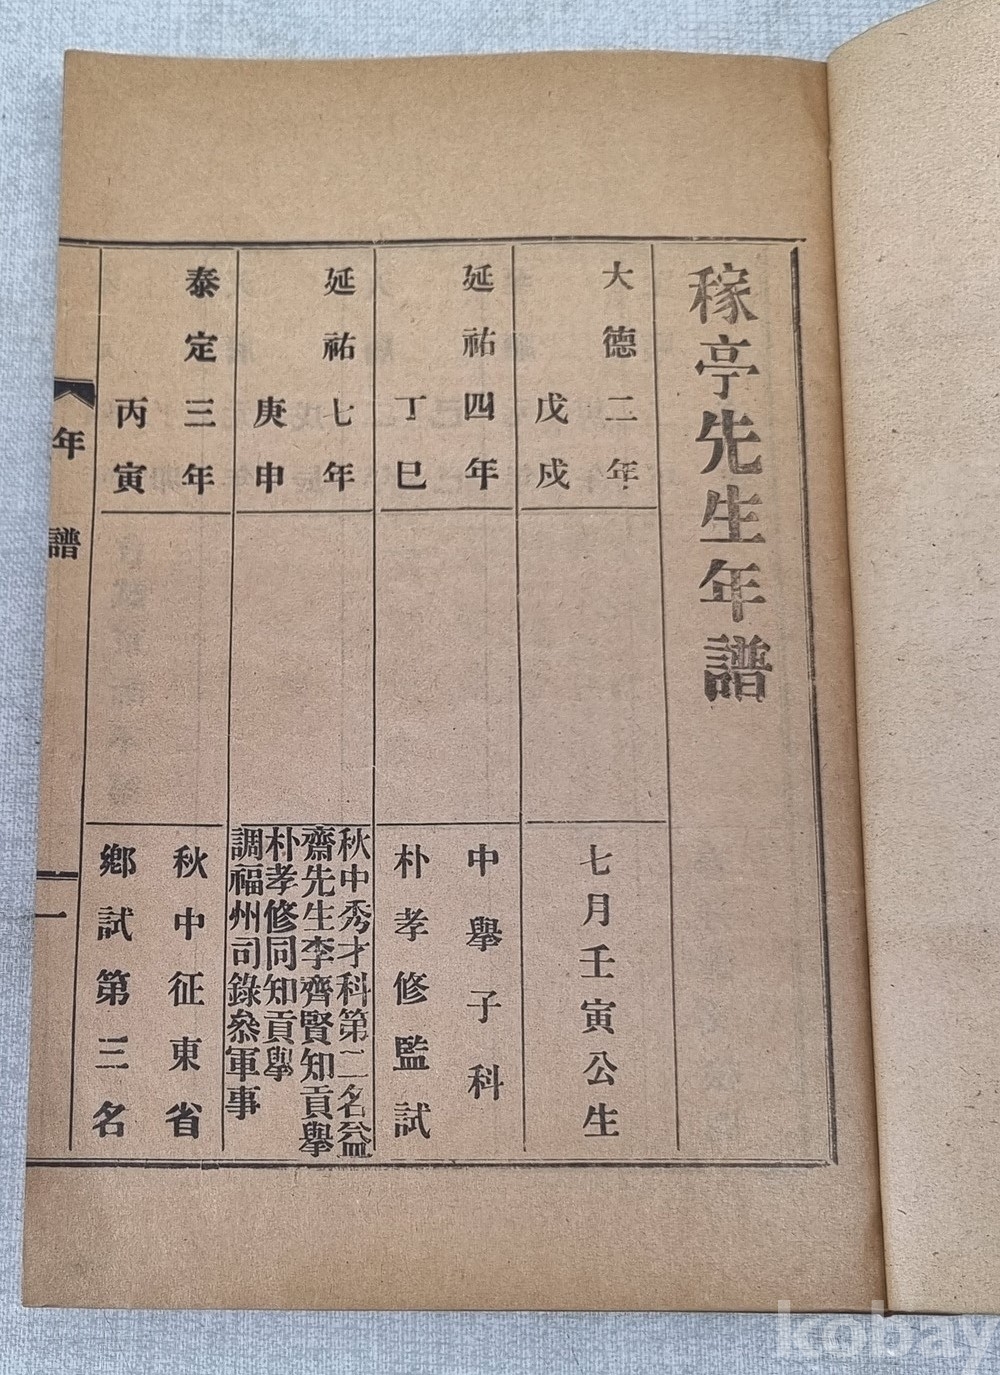 稼亭先生年譜
大德二年
戊戌
七月壬寅公生
延祐四年
丁巳
中舉子科
朴孝修監試
延祐七年
庚申
秋中秀才科第二名益
齋先生李齊賢知貢舉
朴孝修同知貢舉
調福州司錄叅軍事
泰定三年
丙寅
秋中征東省
鄕試第三名
年譜
一
kobay